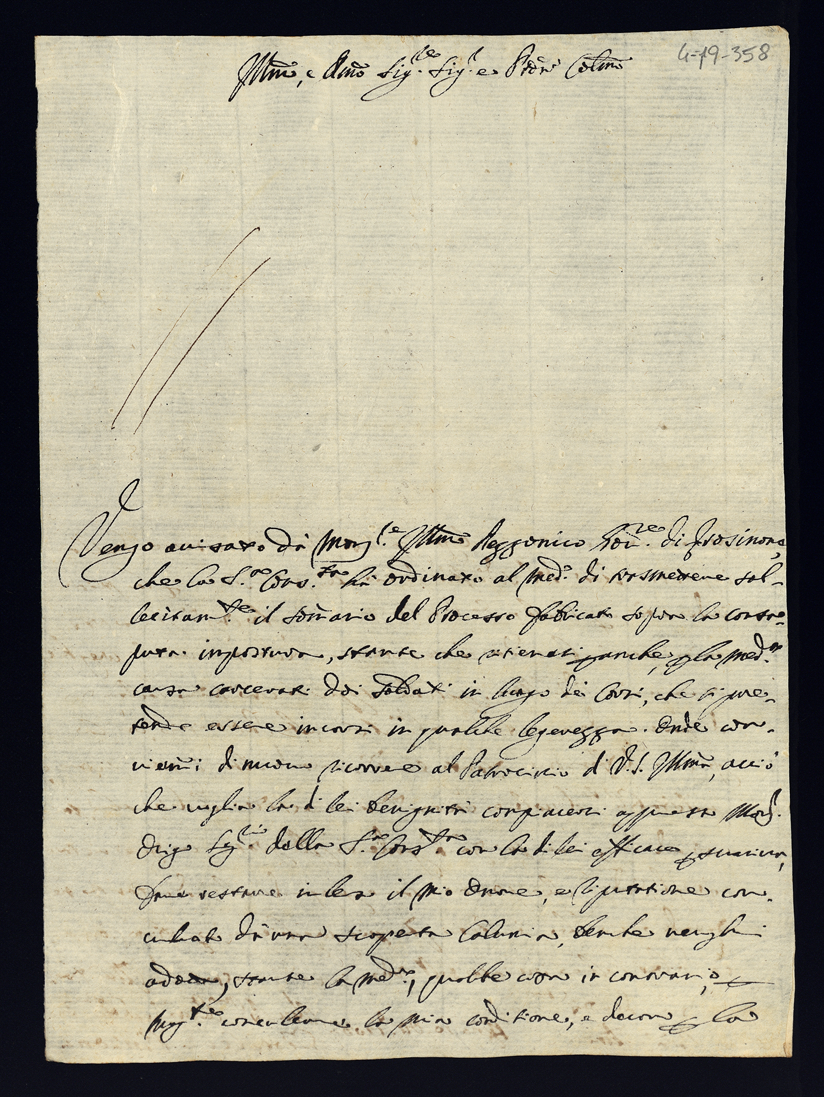 4-19-358
Illmo, e Rmo Sig.re Sig.r e Prõn Colmo
Vengo avisato dà Mons.re Illmo Rezzonico Gov.re di Frosinone
che la S.ra Cons.ta hà ordinato al med.o di trasmettere sol-
lecitam.te il somario del Processo fabricato sopra la consa-
puta impostura, stante che ritenuti anche p la med.ma
causa carcerati doi soldati in luogo dei Corsi, che si pre-
tende essere incorsi in qualche legerezza. Onde con-
viemi di nuovo ricorrere al Patrocinio di V.S. Illma, acciò
che voglia la di lei benignità compiacersi appresso Mons.
Seg.rio della S.ra Cons.ta con la di lei efficace
fare restare illeso il mio onore, e riputatione con-
culcata dà una scoperta Calunia, benche venghi
stante la med.ma, qualche cosa in contrario,
conculcare la mia conditione, e decoro p la